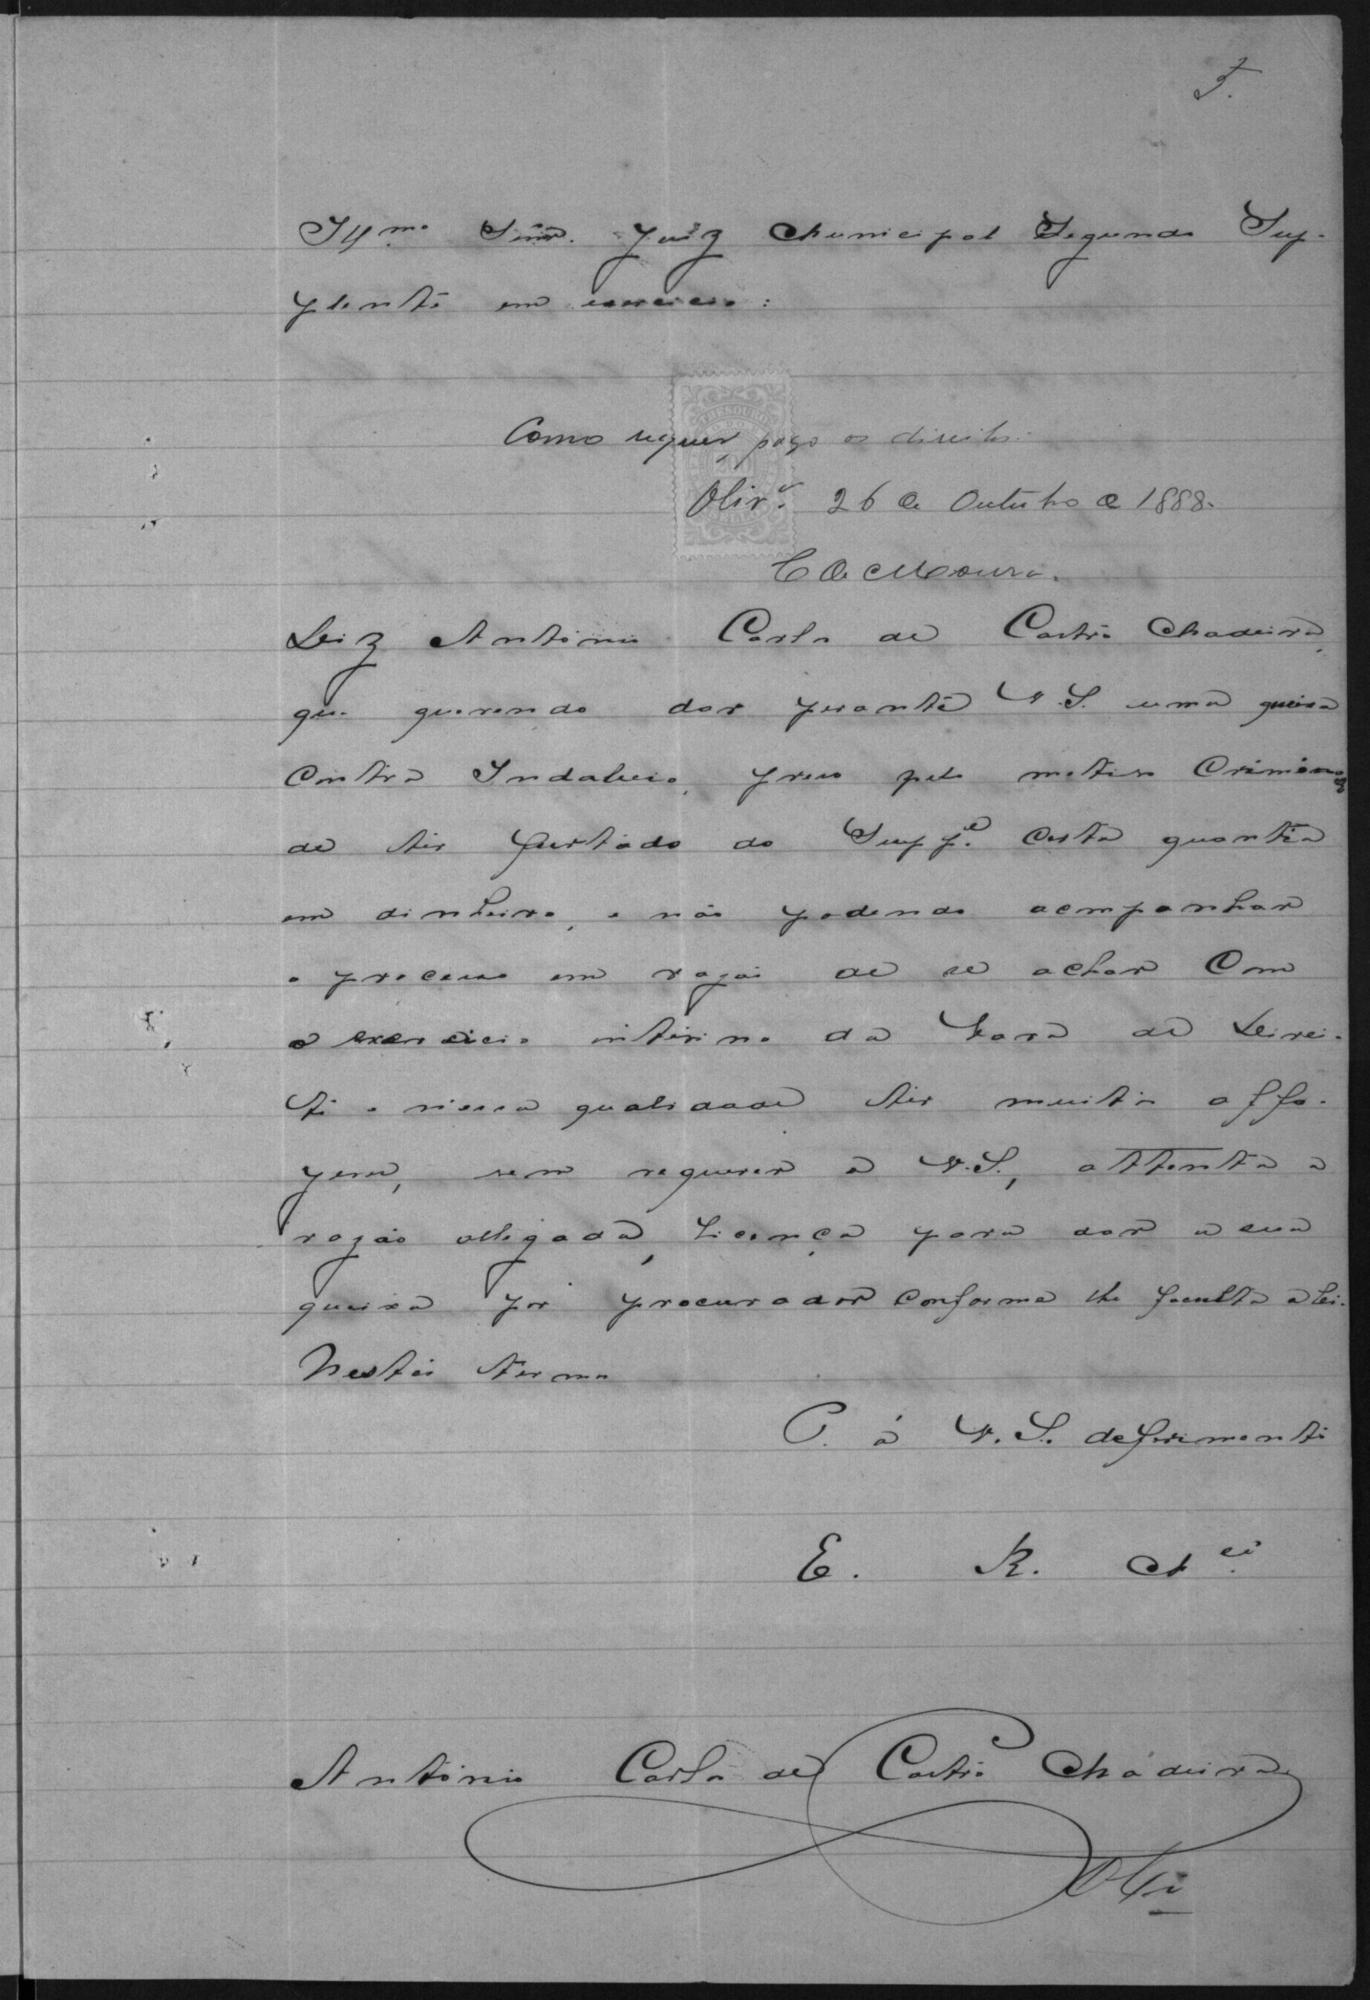 Illmo. Senr. Juiz Municipal Segundo Sup-
plente em exercicio:
Como requer, pago os direitos.
Olivra. 26 de Outubro de 1888.
C de Moura.
Diz Antonio Carlos de Castro Madeira,
que querendo dar perante V. S. uma queixa
contra Indalecio, preso pelo motivo criminoso
de ter furtado do Suppe. certa quantia
em dinheiro, e não podendo acompanhar
o processo em razão de se achar com
o exercicio interino da Vara de Direi-
to e nessa qualidade ter muitos affa-
zeres, vem requerer a V. S., attenta a
razão allegada, licença para dar a sua
queixa por procurador conforme lhe faculta a lei.
Nestes termos
P. á V. S. deferimento
E. R. Mcê.
Antonio Carlos de Castro Madeira